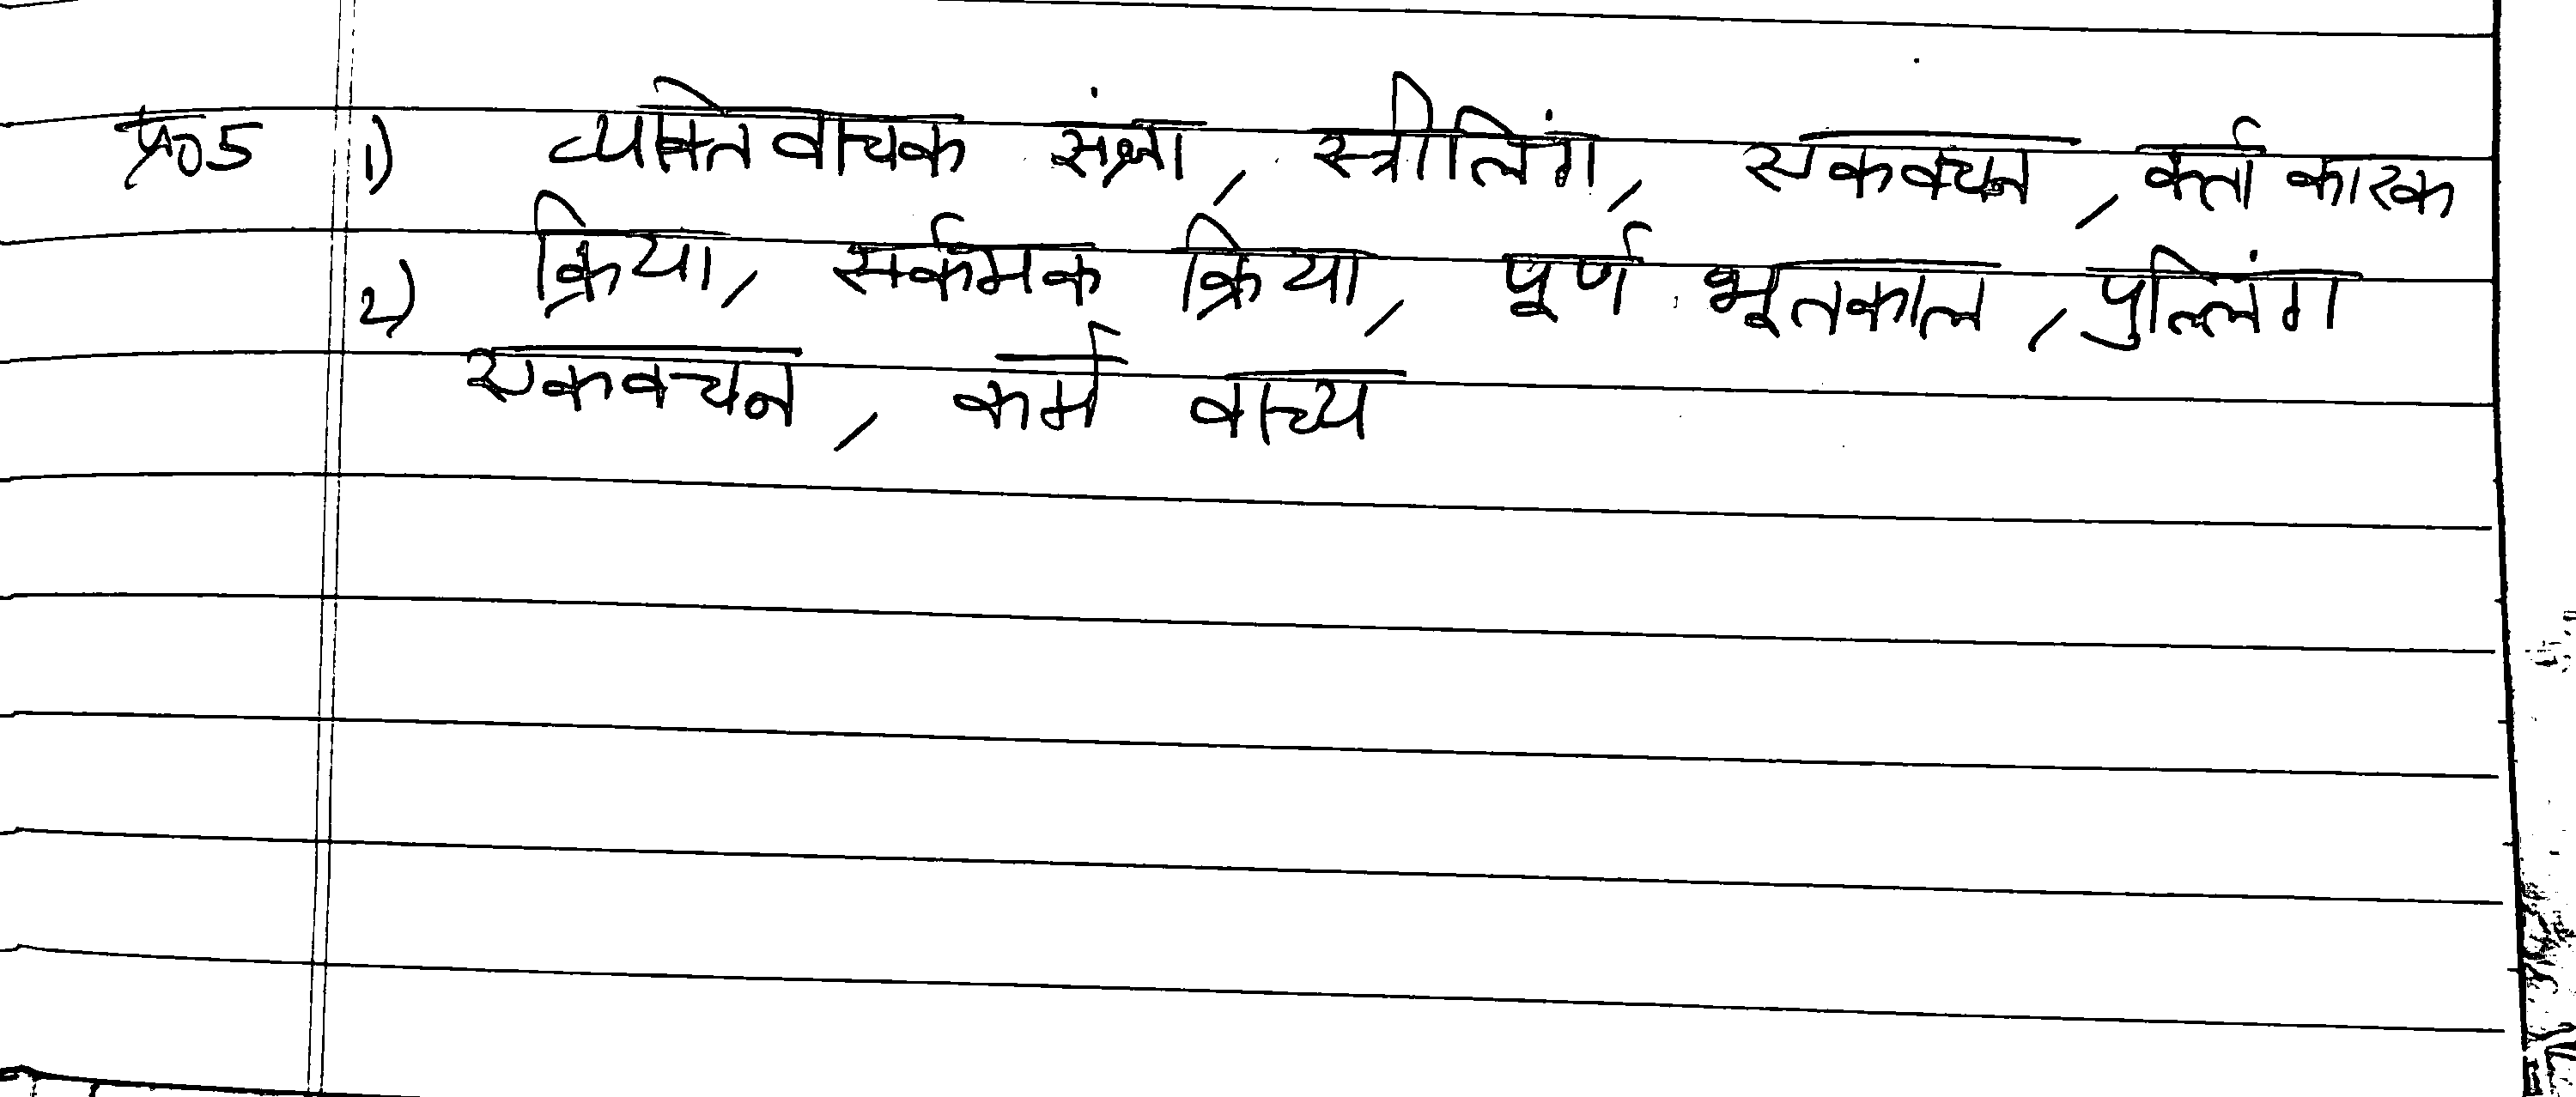 प्र०5 1) व्यक्ति वाचक संज्ञा, स्त्रीलिंग, एकवचन, कर्ता कारक
2) क्रिया, सर्कमक क्रिया, पूर्ण भूतकाल, पुल्लिंग
एकवचन, कर्म वाच्य